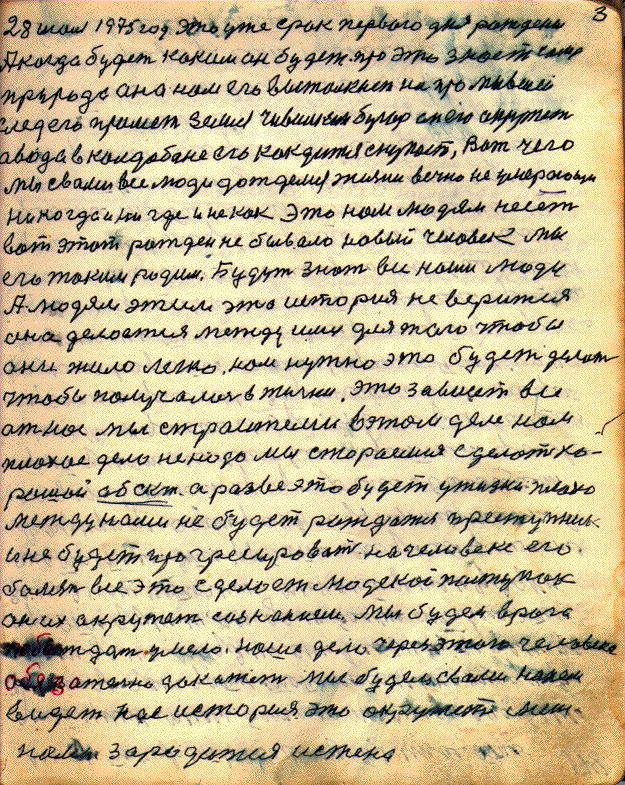 3
28 мая 1975 год Это уже срок первого дня рождени
А когда будет каким он будет про это знает сама
природа она нам его вытолкнет на
след его примет земля его окружет
а вода в его как дитя скупает, Вот чего
мы свами все люди дождемся жизни вечно не умерающи
никогда и ни где и не как Это нам людям несет
вот этот рожден не бывало новый человек мы
его таким родим. Будут знат все наши люди
А людям этим эта история не верится
она делается между ими для того чтобы
они жило легко, нам нужно это будет делат
чтобы получалос в жизни. Это зависит все
от нас мы строители в этом деле нам
плохое дело не надо мы стораемся сделат хо-
роший абскт. а разве это будет у жизни плохо
между нами не будет рождатся преступник
и не будет прогресироват на человеке его.
болезн все это сделает людской поступок
он их окружает сознанием. Мы будем врага
побеждат умело. наше дело через этого человека
обезателно докажет Мы будем свами
видет нас история это окружет
нами зародится истена